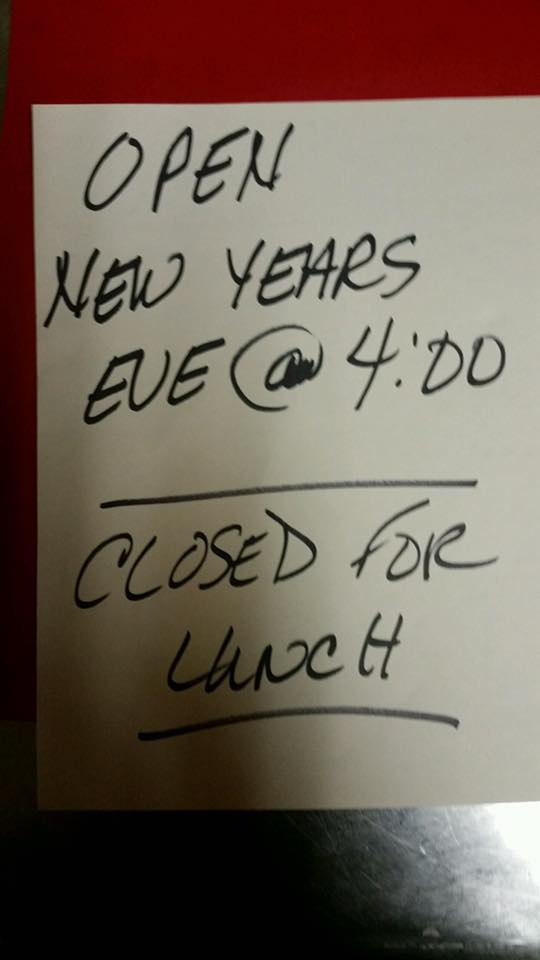 OPEN
NEW YEARS
EVE @ 4:00
CLOSED FOR
LUNCH